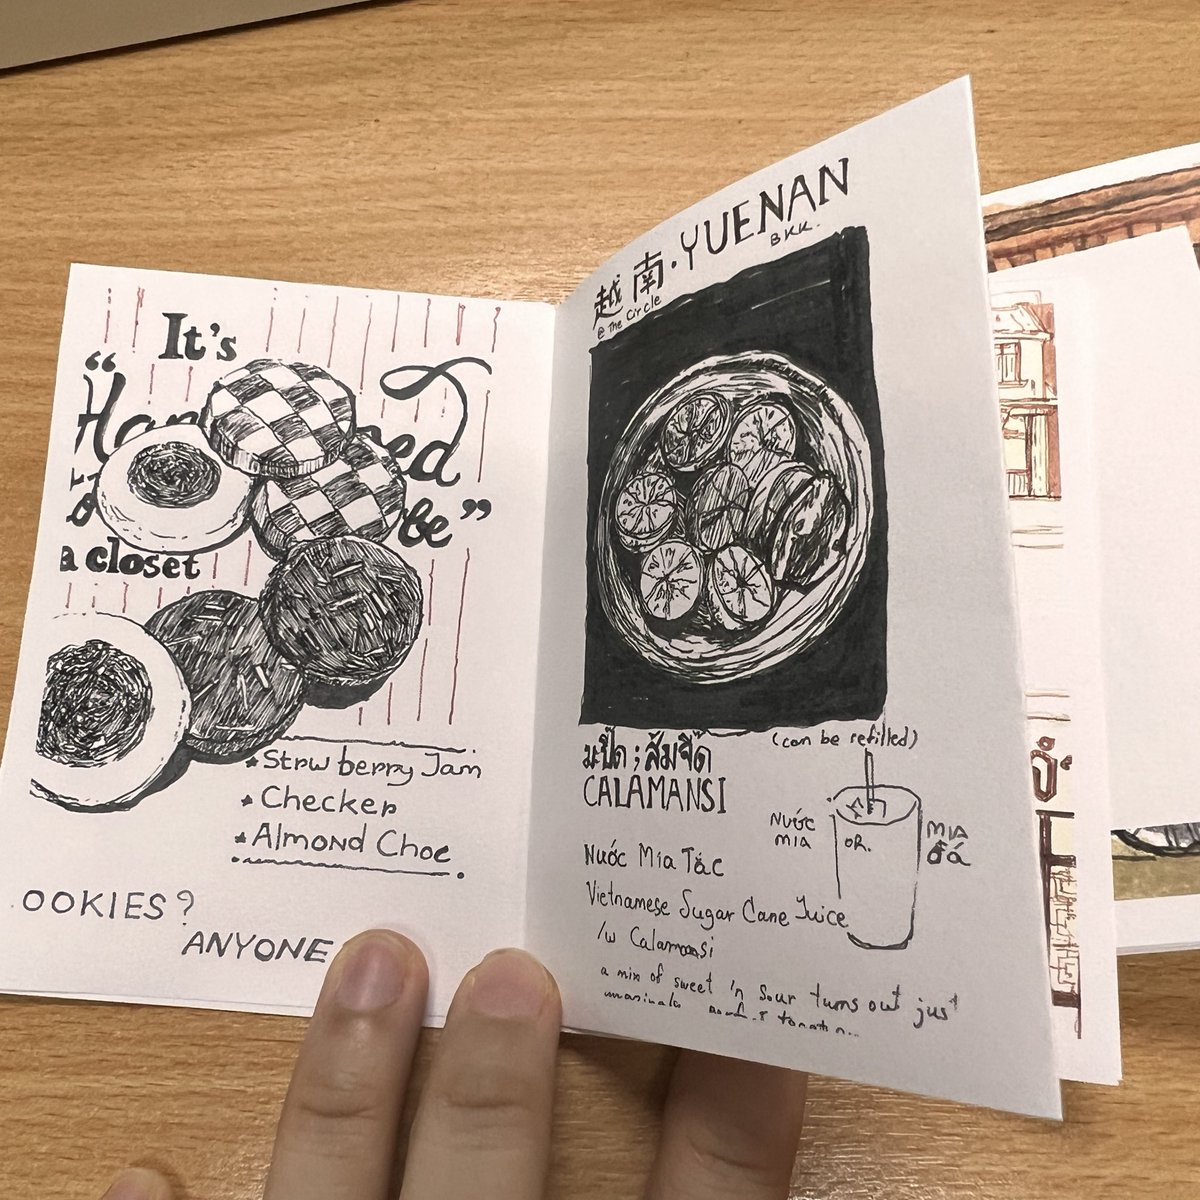 It's
a closet
be”
Strw berry Jam
Checker
Almond Choc
OOKIES?
ANYONE
越南·YUENAN
BKK.
@ The Circle
มะปี๊ด ; ส้มจี๊ด
CALAMANSI
(can be refilled)
NƯỚC
MIA
OR.
MIA
đá
Nước Mía Tắc
Vietnamese Sugar Cane Juice
/w Calamansi
a mix of sweet 'n Sour turns out just